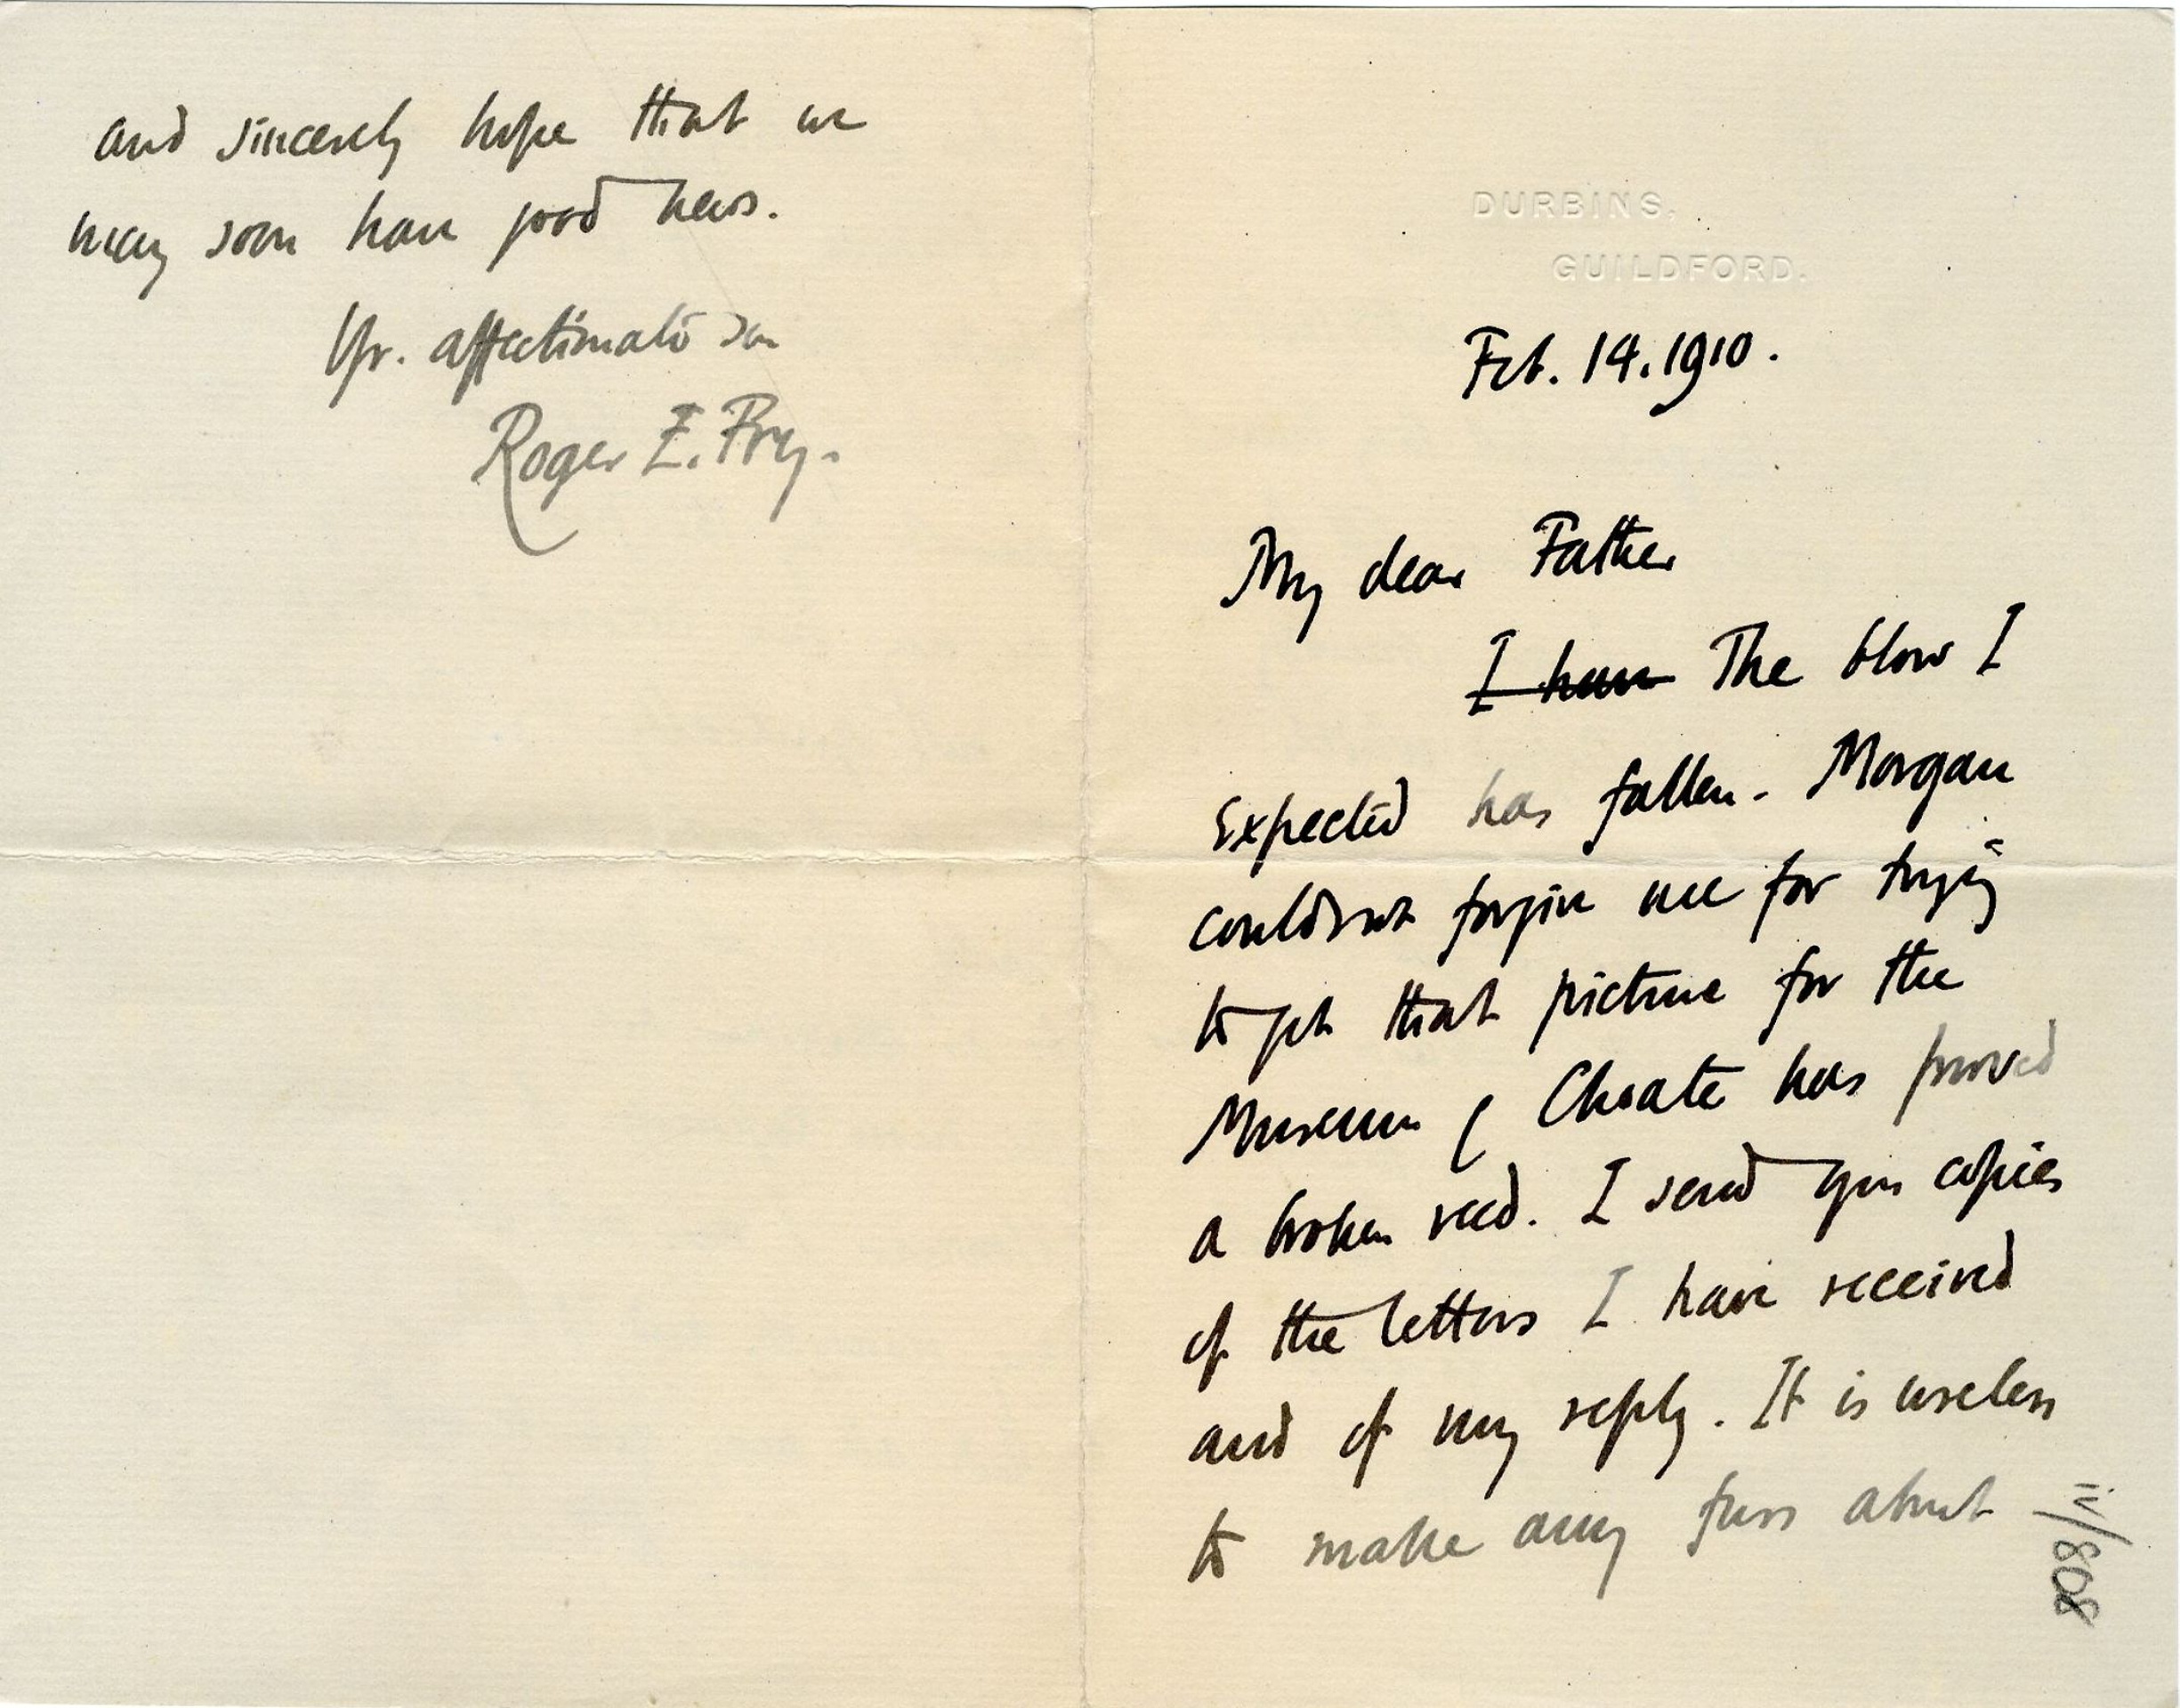 DURBINS,
GUILDFORD.
Feb. 14. 1910.
My dear Father
I have The blow I
expected has fallen. Morgan
could not forgive me for trying
to get that picture for the
Museum & Choate has proved
a broken reed. I send you copies
of the letters I have received
and of my reply. It is useless
to make any fuss about
iv/808
and sincerely hope that we
may soon have good news.
Yr. affectionate son
Roger E. Fry.